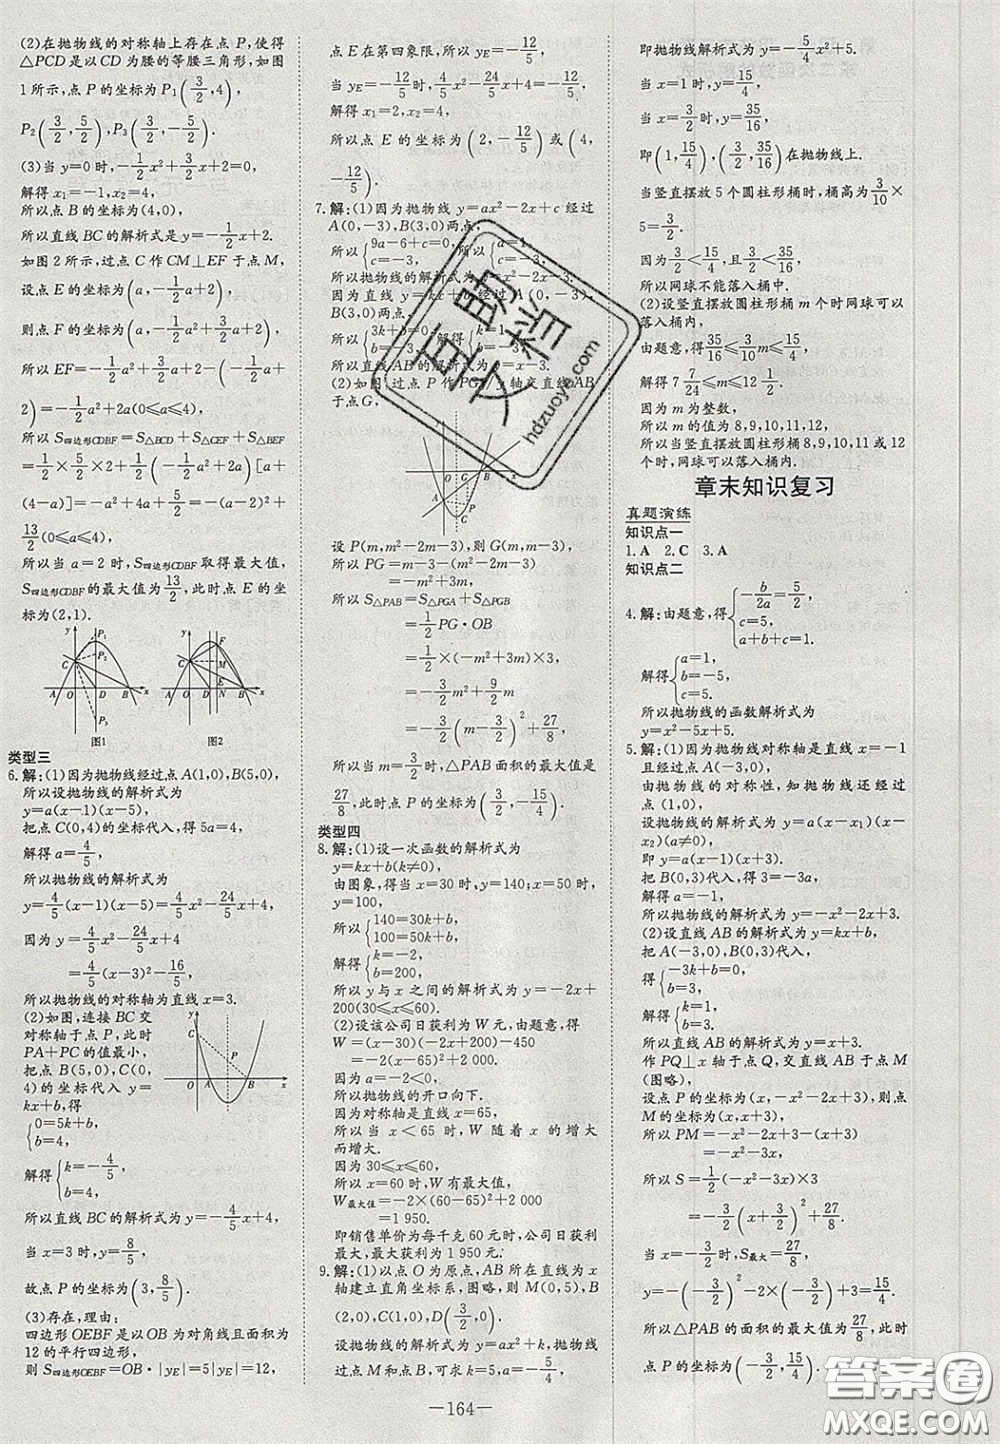 (2)在抛物线的对称轴上存在点 P,使得
△PCD 是以 CD 为腰的等腰三角形,如图
1 所示,点 P 的坐标为 P₁(3/2,4),
P₂(3/2,5/2),P₃(3/2,-5/2).
(3)当 y=0 时,-1/2x²+3/2x+2=0,
解得 x₁=-1,x₂=4,
所以点 B 的坐标为(4,0),
所以直线 BC 的解析式是 y=-1/2x+2.
如图 2 所示,过点 C 作 CM⊥EF 于点 M,
设点 E 的坐标为(a,-1/2a+2),
则点 F 的坐标为(a,-1/2a²+3/2a+2),
所以 EF=-1/2a²+3/2a+2-(-1/2a+
2)=-1/2a²+2a(0≤a≤4),
所以 S四边形CDBF=S△BCD+S△CEF+S△BEF
=1/2×5/2×2+1/2(-1/2a²+2a)[a+
(4-a)]=-a²+4a+5/2=-(a-2)²+
13/2(0≤a≤4),
所以当 a=2 时,S四边形CDBF取得最大值,
S四边形CDBF的最大值为13/2,此时点 E 的坐
标为(2,1).
y P₁ P₂ C A O D B x P₃
图1
y F C M E A O D N B x
图2
类型三
6.解:(1)因为抛物线经过点 A(1,0),B(5,0),
所以设抛物线的解析式为
y=a(x-1)(x-5),
把点 C(0,4)的坐标代入,得 5a=4,
解得 a=4/5,
所以抛物线的解析式为
y=4/5(x-1)(x-5)=4/5x²-24/5x+4,
因为 y=4/5x²-24/5x+4
=4/5(x-3)²-16/5,
所以抛物线的对称轴为直线 x=3.
(2)如图,连接 BC 交
对称轴于点 P,此时
PA+PC 的值最小,
把点 B(5,0),C(0,
4)的坐标代入 y=
kx+b,得
{0=5k+b,
b=4,
解得{k=-4/5,
b=4,
y C P O A B x
所以直线 BC 的解析式为 y=-4/5x+4,
当 x=3 时,y=8/5,
故点 P 的坐标为(3,8/5).
(3)存在,理由:
四边形 OEBF 是以 OB 为对角线且面积为
12 的平行四边形,
则 S四边形OEBF=OB·|yE|=5|yE|=12,
点 E 在第四象限,所以 yE=-12/5,
当 yE=-12/5时,4/5x²-24/5x+4=-12/5,
解得 x₁=2,x₂=4,
所以点 E 的坐标为(2,-12/5)或(4,
-12/5).
7.解:(1)因为抛物线 y=ax²-2x+c 经过
A(0,-3),B(3,0)两点,
所以{9a-6+c=0, c=-3, 所以{a=1, c=-3,
所以抛物线的解析式为 y=x²-2x-3.
因为直线 y=kx+b 经过 A(0,-3),
B(3,0)两点,
所以{3k+b=0, b=-3, 解得{k=1, b=-3,
所以直线 AB 的解析式为 y=x-3.
(2)如图,过点 P 作 PG∥y 轴交直线 AB
于点 G,
y O G B x A P
设 P(m,m²-2m-3),则 G(m,m-3),
所以 PG=m-3-(m²-2m-3)
=-m²+3m,
所以 S△PAB=S△PGA+S△PGB
=1/2PG·OB
=1/2×(-m²+3m)×3
=-3/2m²+9/2m
=-3/2(m-3/2)²+27/8,
所以当 m=3/2时,△PAB 面积的最大值是
27/8,此时点 P 的坐标为(3/2,-15/4).
类型四
8.解:(1)设一次函数的解析式为
y=kx+b(k≠0),
由图象,得当 x=30 时,y=140;x=50 时,
y=100,
所以{140=30k+b,
100=50k+b,
解得{k=-2,
b=200,
所以 y 与 x 之间的解析式为 y=-2x+
200(30≤x≤60).
(2)设该公司日获利为 W 元,由题意,得
W=(x-30)(-2x+200)-450
=-2(x-65)²+2 000,
因为 a=-2<0,
所以抛物线的开口向下.
因为对称轴是直线 x=65,
所以当 x<65 时,W 随着 x 的增大
而增大.
因为 30≤x≤60,
所以 x=60 时,W 有最大值,
W最大值=-2×(60-65)²+2 000
=1 950.
即销售单价为每千克 60 元时,公司日获利
最大,最大获利为 1 950 元.
9.解:(1)以点 O 为原点,AB 所在直线为 x
轴建立直角坐标系,图略,则 M(0,5),B
(2,0),C(1,0),D(3/2,0).
设抛物线的解析式为 y=ax²+k,抛物线
过点 M 和点 B,可求 k=5,a=-5/4,
—164—
即抛物线解析式为 y=-5/4x²+5.
当 x=1 时,y=15/4;
当 x=3/2时,y=35/16,
即(1,15/4),(3/2,35/16)在抛物线上.
当竖直摆放 5 个圆柱形桶时,桶高为3/10×
5=3/2,
因为3/2<15/4,且3/2<35/16,
所以网球不能落入桶中.
(2)设竖直摆放圆柱形桶 m 个时网球可以
落入桶内,
由题意,得35/16≤3/10m≤15/4,
解得 7 7/24≤m≤12 1/2.
因为 m 为整数,
所以 m 的值为 8,9,10,11,12,
所以当竖直摆放圆柱形桶 8,9,10,11 或 12
个时,网球可以落入桶内.
章末知识复习
真题演练
知识点一
1.A 2.C 3.A
知识点二
4.解:由题意,得{-b/2a=5/2,
c=5,
a+b+c=1,
解得{a=1,
b=-5,
c=5.
所以抛物线的函数解析式为
y=x²-5x+5.
5.解:(1)因为抛物线对称轴是直线 x=-1
且经过点 A(-3,0),
由抛物线的对称性,知抛物线还经过
点(1,0),
设抛物线的解析式为 y=a(x-x₁)(x-
x₂)(a≠0),
即 y=a(x-1)(x+3),
把 B(0,3)代入,得 3=-3a,
解得 a=-1,
所以抛物线的解析式为 y=-x²-2x+3.
(2)设直线 AB 的解析式为 y=kx+b,
把 A(-3,0),B(0,3)代入,
得{-3k+b=0,
b=3,
解得{k=1,
b=3,
所以直线 AB 的解析式为 y=x+3.
作 PQ⊥x 轴于点 Q,交直线 AB 于点 M
(图略),
设点 P 的坐标为(x,-x²-2x+3),则点
M 的坐标为(x,x+3),
所以 PM=-x²-2x+3-(x+3)
=-x²-3x,
所以 S=1/2(-x²-3x)×3
=-3/2(x+3/2)²+27/8,
当 x=-3/2时,S最大=27/8,
y=-(-3/2)²-2×(-3/2)+3=15/4,
所以△PAB 的面积的最大值为27/8,此时
点 P 的坐标为(-3/2,15/4).
互助文档
hdzuoye.com
答案圈
MXQE.COM